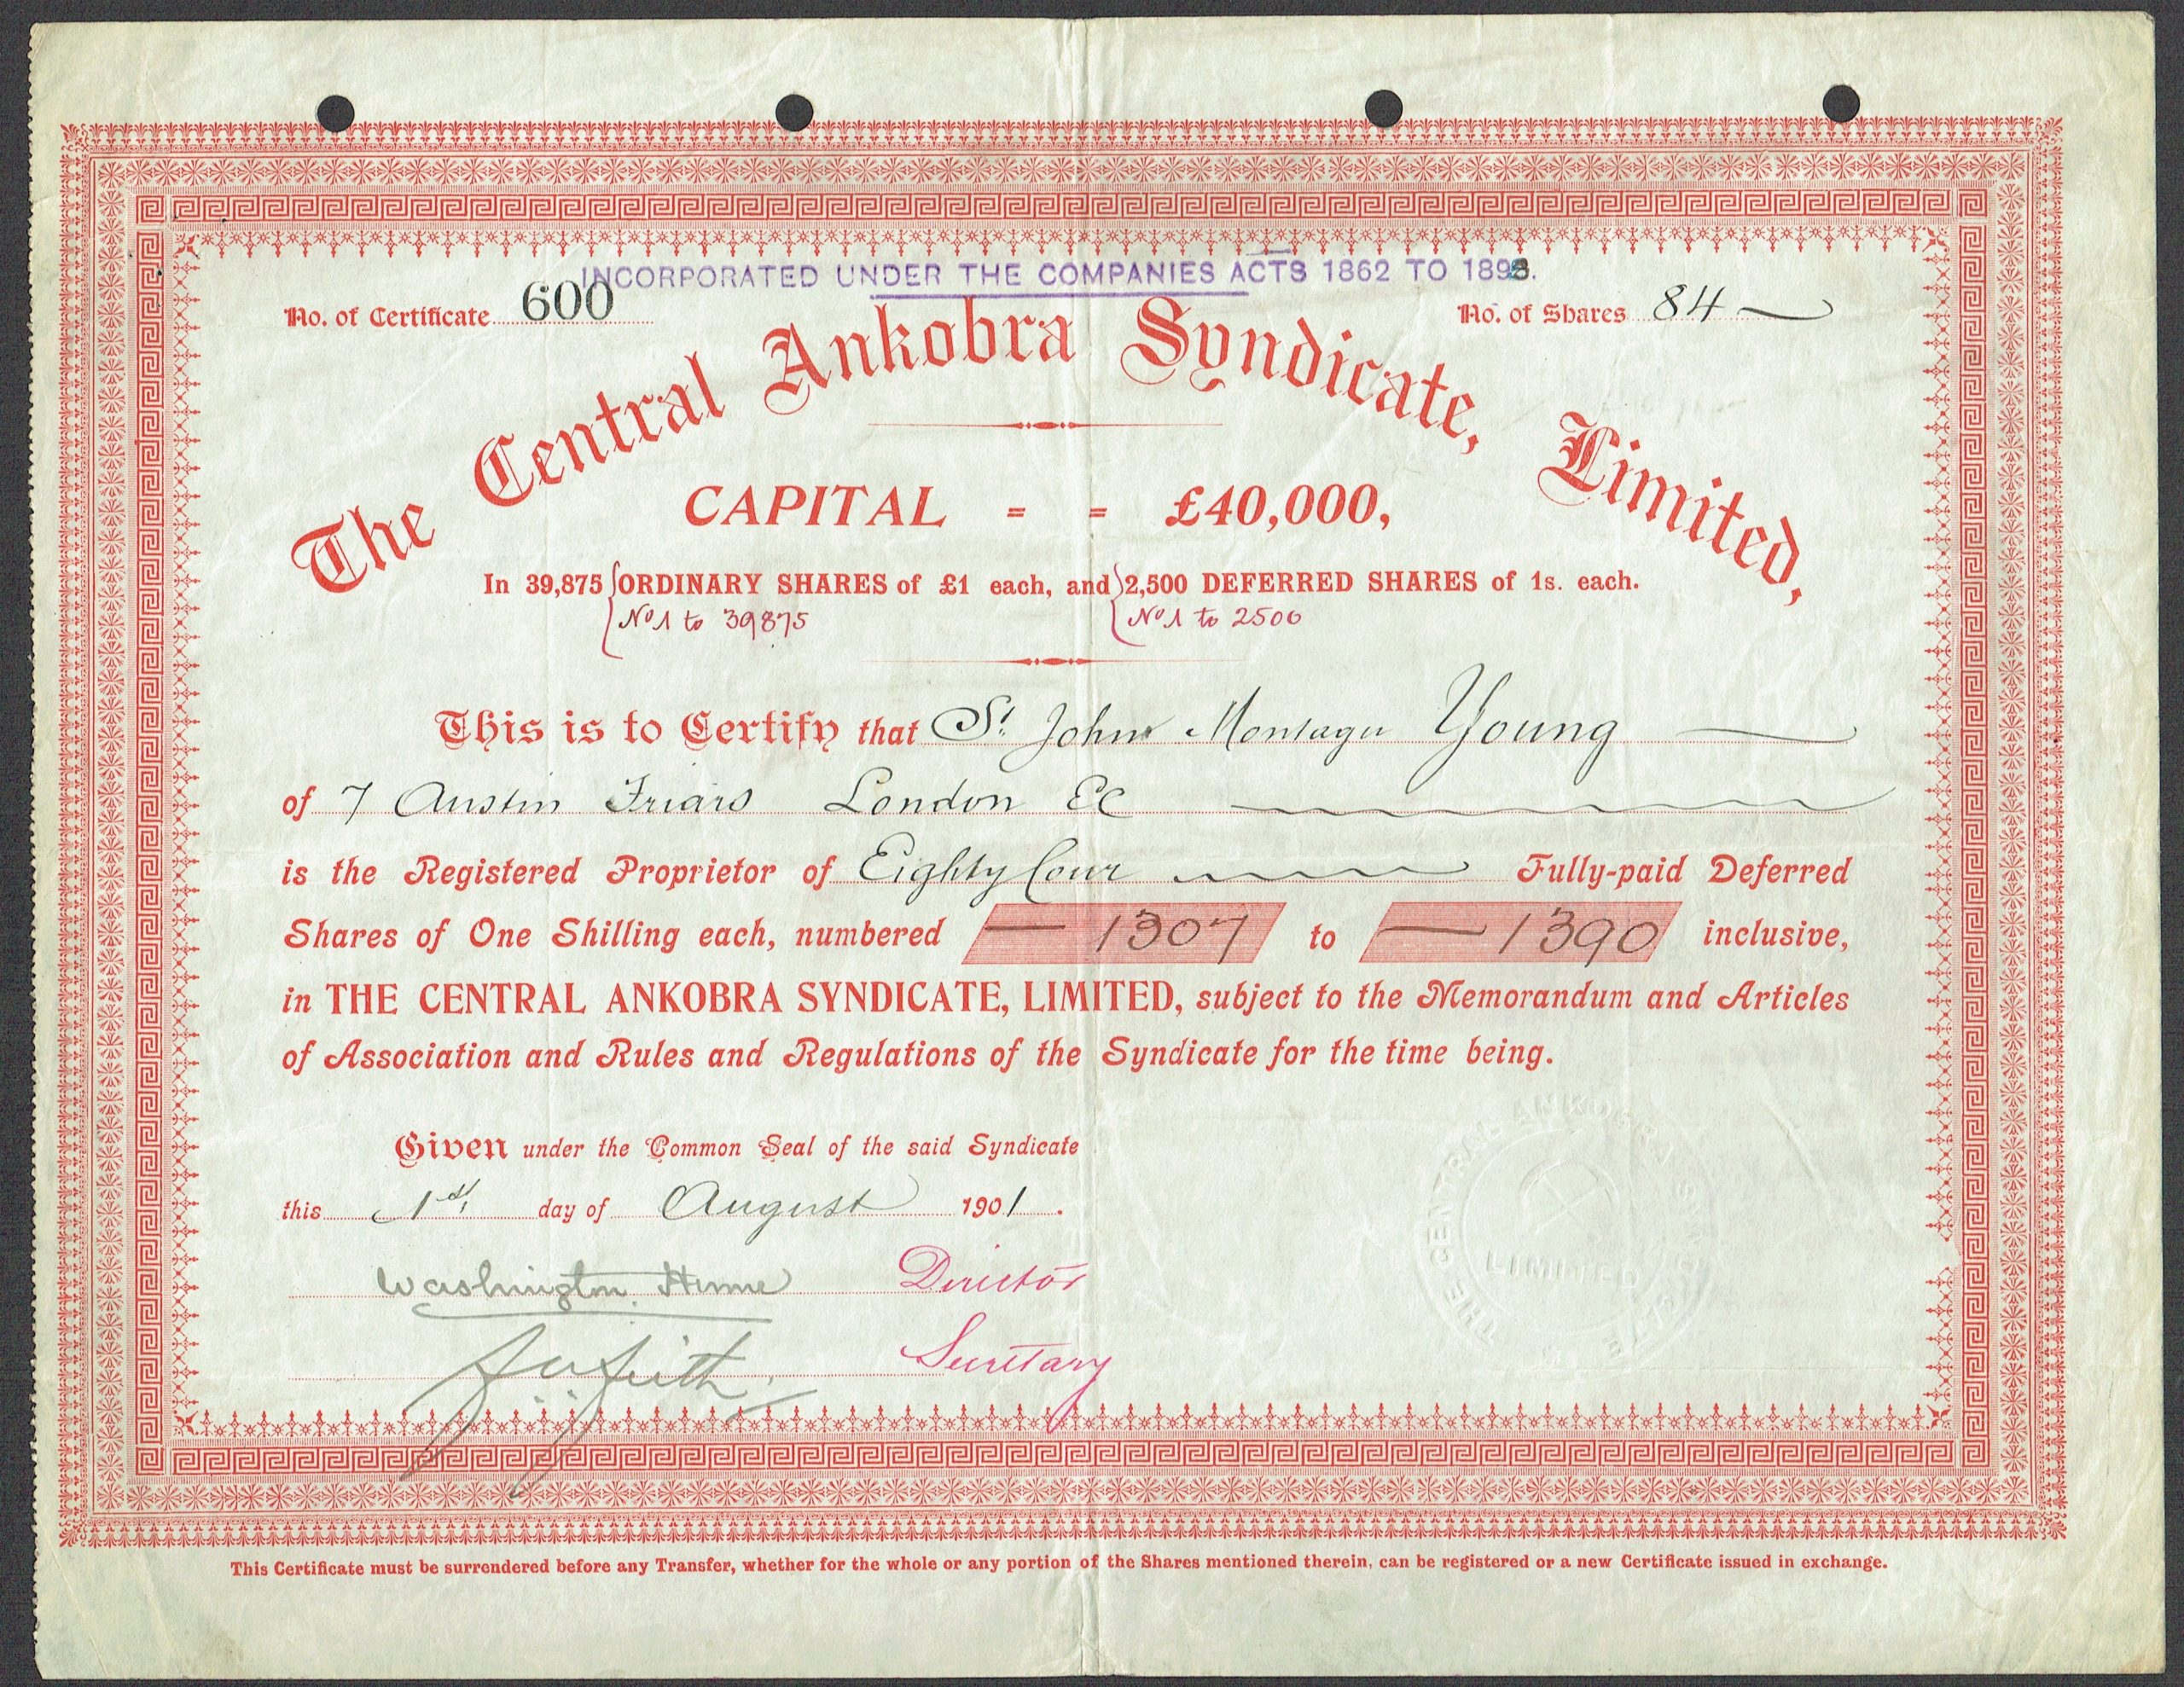 INCORPORATED UNDER THE COMPANIES ACTS 1862 TO 1898.
No. of Certificate 600
No. of Shares 84
The Central Ankobra Syndicate, Limited,
CAPITAL = = £40,000,
In 39,875 ORDINARY SHARES of £1 each, and 2,500 DEFERRED SHARES of 1s. each.
No 1 to 39875 No 1 to 2500
This is to Certify that St. John Montagu Young
of 7 Austin Friars London EC
is the Registered Proprietor of Eighty four Fully-paid Deferred
Shares of One Shilling each, numbered 1307 to 1390 inclusive,
in THE CENTRAL ANKOBRA SYNDICATE, LIMITED, subject to the Memorandum and Articles
of Association and Rules and Regulations of the Syndicate for the time being.
Given under the Common Seal of the said Syndicate
this 1st day of August 1901.
Washington Hume Director
Secretary
THE CENTRAL ANKOBRA SYNDICATE
LIMITED
This Certificate must be surrendered before any Transfer, whether for the whole or any portion of the Shares mentioned therein, can be registered or a new Certificate issued in exchange.